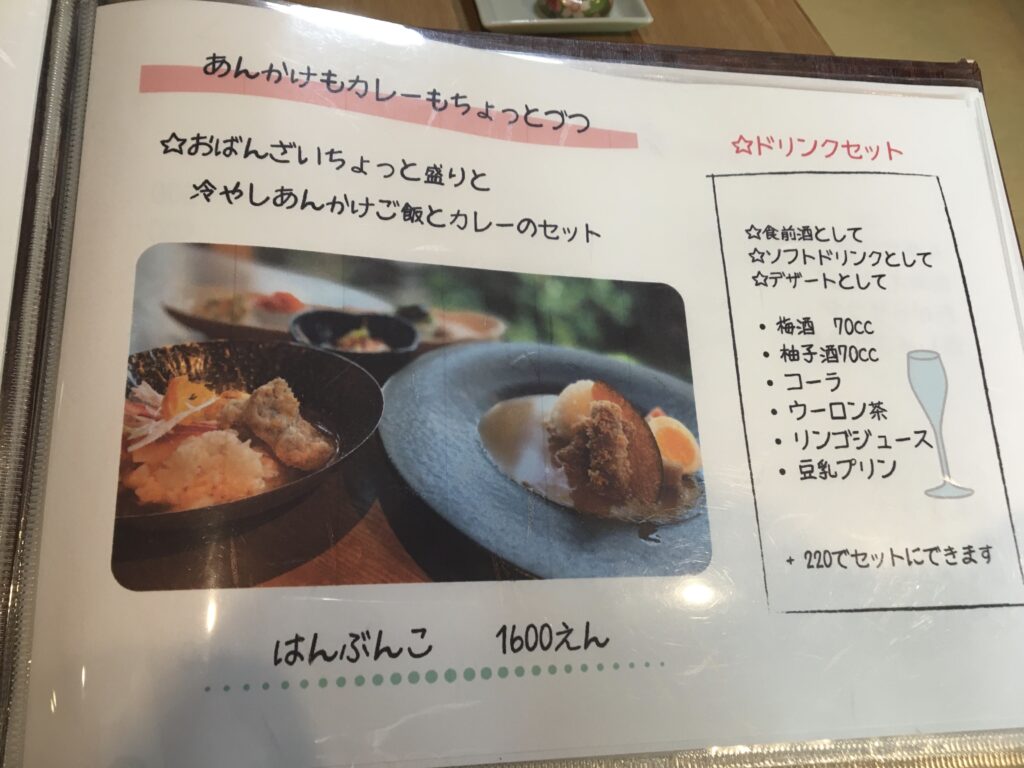 あんかけもカレーもちょっとづつ
☆おばんざいちょっと盛りと
冷やしあんかけご飯とカレーのセット
はんぶんこ 1600えん
☆ドリンクセット
☆食前酒として
☆ソフトドリンクとして
☆デザートとして
・梅酒 70cc
・柚子酒70cc
・コーラ
・ウーロン茶
・リンゴジュース
・豆乳プリン
+ 220でセットにできます